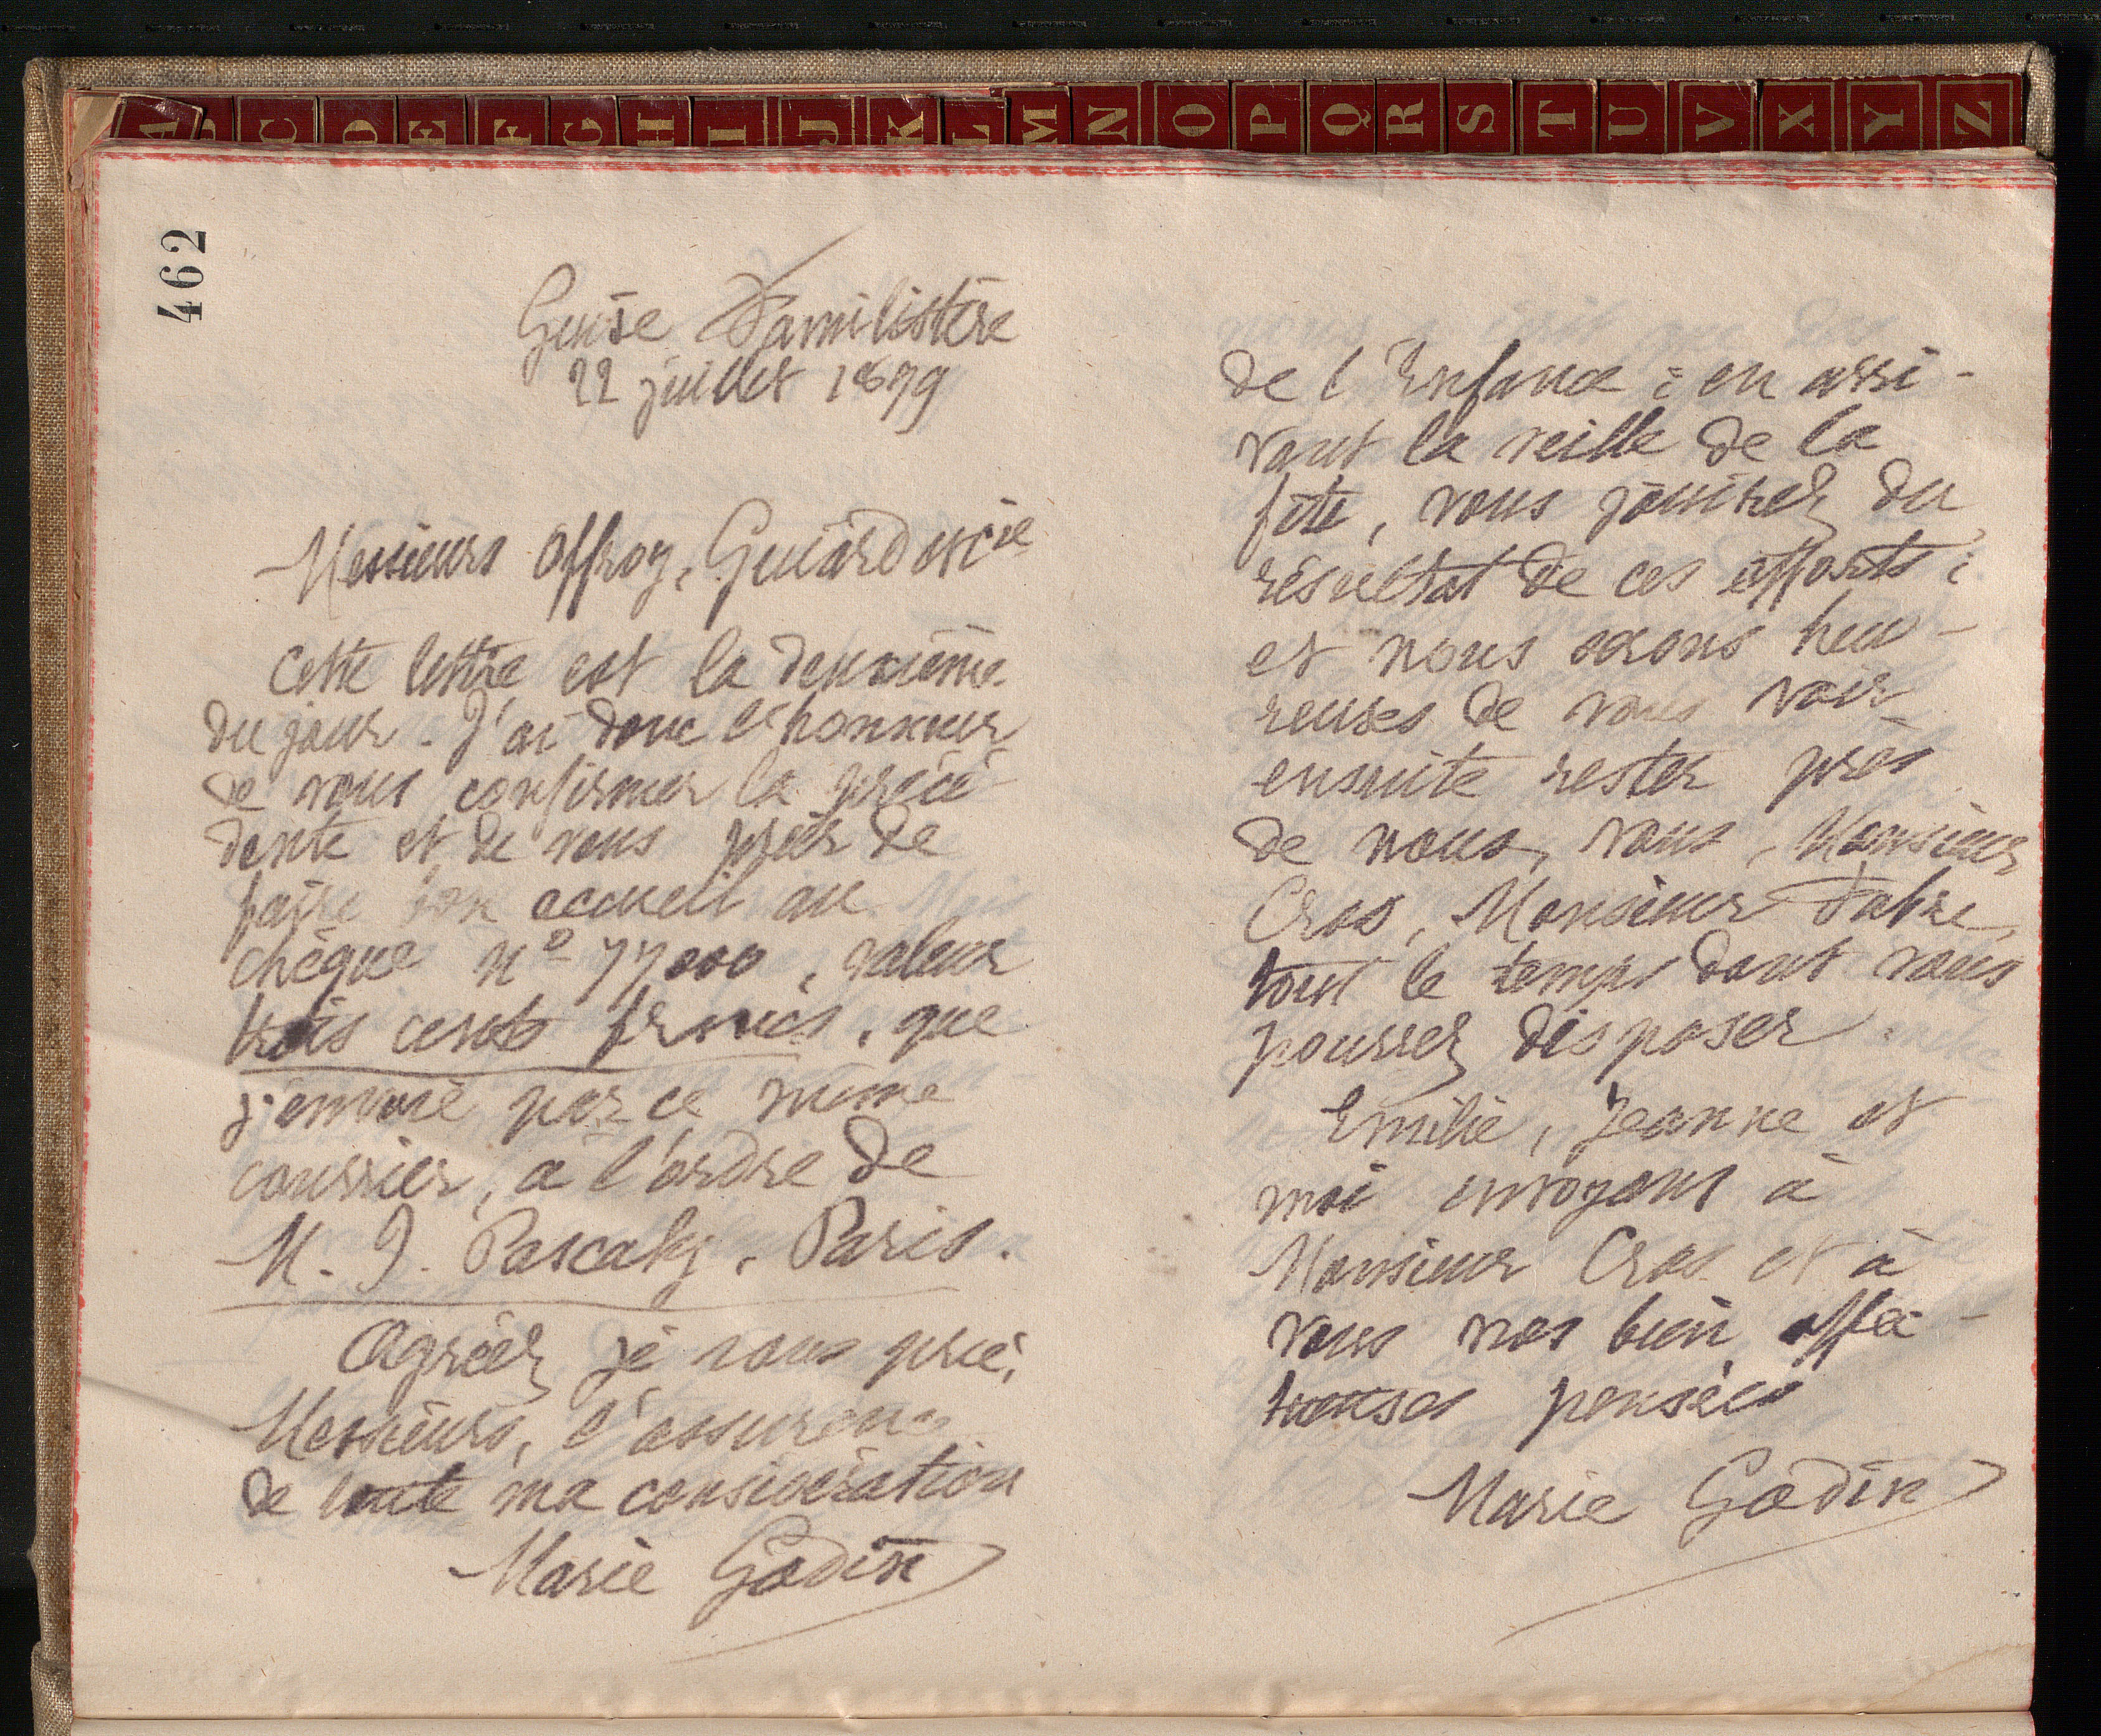 A B C D E F G H I J K L M N O P Q R S T U V X Y Z
462
Guise Familistère
22 juillet 1879
Messieurs Offroy, Guiard & Cie
Cette lettre est la deuxième
du jour. J'ai donc l'honneur
de vous confirmer la précé
dente et de vous prier de
faire bon accueil au
chèque no 77000, valeur
trois cents francs, que
j'envoie par ce même
courrier, à l'ordre de
M. J. Pascaly, Paris.
Agréez je vous prie,
Messieurs, l'assurance
de toute ma considération
Marie Godin
de l'Enfance : en arri-
vant la veille de la
fête, vous jouirez du
résultat de ces efforts ;
et nous serons heu-
reuses de vous voir
ensuite rester près
de nous, vous, Monsieur
Cros, Monsieur Fabre,
tout le temps dont vous
pourrez disposer.
Emilie, Jeanne et
moi envoyons à
Monsieur Cros et à
vous nos bien affec-
tueuses pensées
Marie Godin